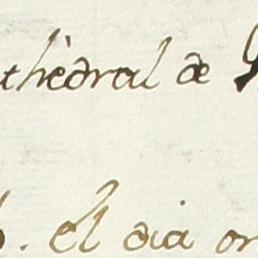 thedral de
. el dia on